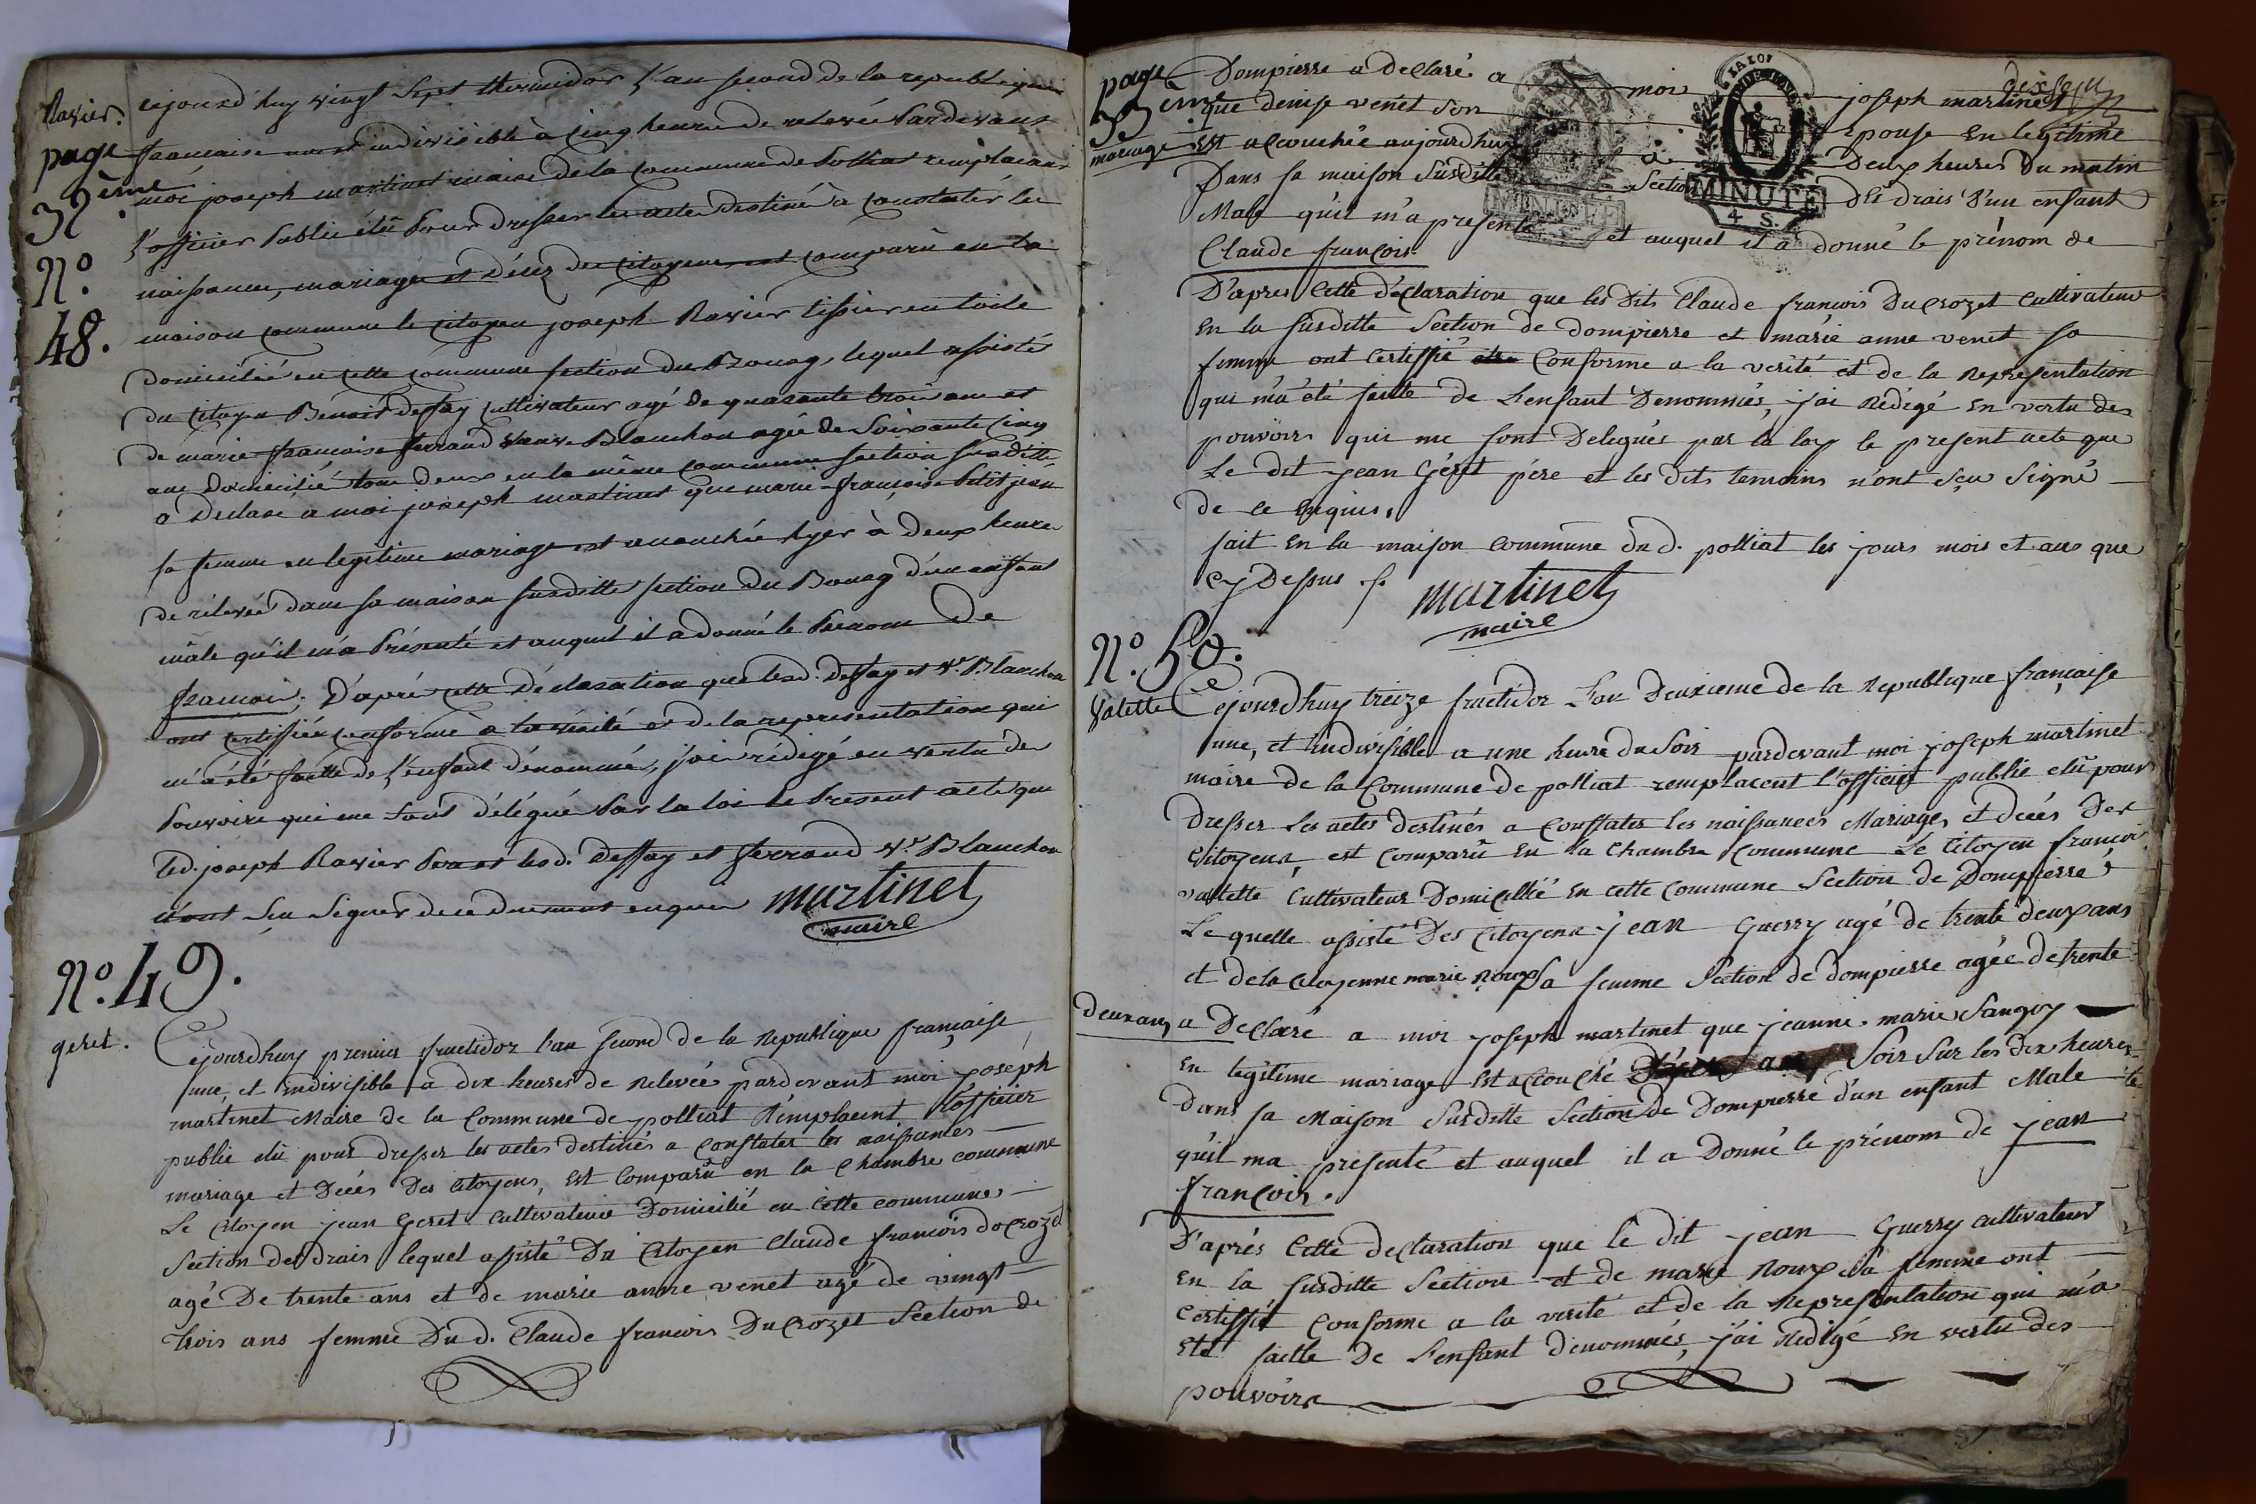 Ravier.
page
32ème
N°
48.
cejourd'huy vingt sept thermidor l'an second de la republique
francaise une et indivisible à cinq heures de relevée pardevant
moi joseph martinet maire de la commune de Polliat remplacant
l'officier public élû pour dresser les actes destinés à constater les
naissances, mariages et décéz des citoyens est comparû en la
maison commune le citoyen joseph Ravier tissier en toile
domicilié en cette commune section du Bourg, lequel assisté
du citoyen Benoit Dessay cultivateur agé de quarante trois ans et
de marie françoise ferrand veuve Blanchon agée de soixante cinq
ans domicilié tous deux en la même commune section susditte
a declaré à moi joseph martinet que marie-françoise Petitjean
sa femme en legitime mariage est accouchée hyer à deux heures
de rélevée dans sa maison susditte section du Bourg d'un enfant
mâle qu'il m'a présenté et auquel il a donné le prenom de
francois. D'aprés cette déclaration que lesd. Dessay et Ve Blanchon
ont certiffiée conforme à la vérité et de la representation qui
m'a été faitte de l'enfant dénommé, j'ai rédigé en vertu des
pouvoirs qui me sont délégués par la loi le present acte que
led. joseph Ravier pere et lesd. Dessay et ferrand Ve Blanchon
n'ont sçu signer de ce duement enquis martinet
maire
N°. 49.
geret.
Cejourdhuy premier fructidor l'an second de la Republique française
une, et indivisible a dix heures de Relevée pardevant moi joseph
martinet Maire de la Commune de polliat Remplacent l'officier
public elû pour dresser les actes destinés a constater les naissances
mariage et Décés des citoyens, est comparû en la chambre commune
Le Citoyen jean Geret cultivateur Domicilié en cette commune
Section des drais lequel assisté Du Citoyen Claude francois ducrozet
agé De trente ans et de marie anne venet agé de vingt
trois ans femme Du d. Claude francois Ducrozet Section de
page
33ème
Dompierre a declaré a moi joseph martinet
que denise venet son epouse en legitime
mariage Est accouchée aujourdhuy a Deux heures Du matin
Dans sa maison susditte Section des drais d'un enfant
Male qu'il m'a presenté et auquel il a donné le prénom de
Claude françois.
LA LOI
MINUTE
4 S.
MINUTE
D'apres Cette déclaration que les Dits Claude francois Ducrozet Cultivateur
En la susditte Section de dompierre et marie anne venet sa
femme ont Certiffié Conforme a la verité et de la Representation
qui m'a été faitte de L'enfant Denommés, j'ai Rédigé en vertu des
pouvoirs qui me sont Delegués par la loy le present acte que
Le dit jean Géret pére et les dits temoins n'ont sçu Signé
de ce Enquis.
fait En la maison Commune du d. polliat les jours mois et ans que
cy Dessus
martinet
maire
N°. 50.
Valette
Cejourdhuy treize fructidor L'an Deuxieme de la Republique française
une, et indivisible a une heure du Soir pardevant moi joseph martinet
maire de la Commune de polliat remplacent l'officier public elû pour
dresser les actes destinés a Constater les naissances Mariages et décés Des
citoyens, est Comparû En la Chambre Commune Le Citoyen francoi
valette Cultivateur Domicillié En cette Commune Section de Dompierre
Le quelle assisté Des Citoyens jean Guerry agé de trente deux ans
et de la Citoyenne marie Roux Sa femme Section de dompierre agée de trente
deux ans a Declaré a moi joseph martinet que jeanne marie Sangoy
En legitime mariage est accouché Soir Sur les dix heures
dans sa Maison Susditte Section De Dompierre d'un enfant Male
qu'il ma presenté et auquel il a Donné le prénom de jean
françois.
D'aprés Cette declaration que le dit jean Guerry cultivateur
En la susditte Section et de marie Roux sa femme ont
Certiffié Conforme a la verité et de la Representation qui m'a
Eté faitte De L'enfant denommés, j'ai Redigé en vertu des
pouvoirs